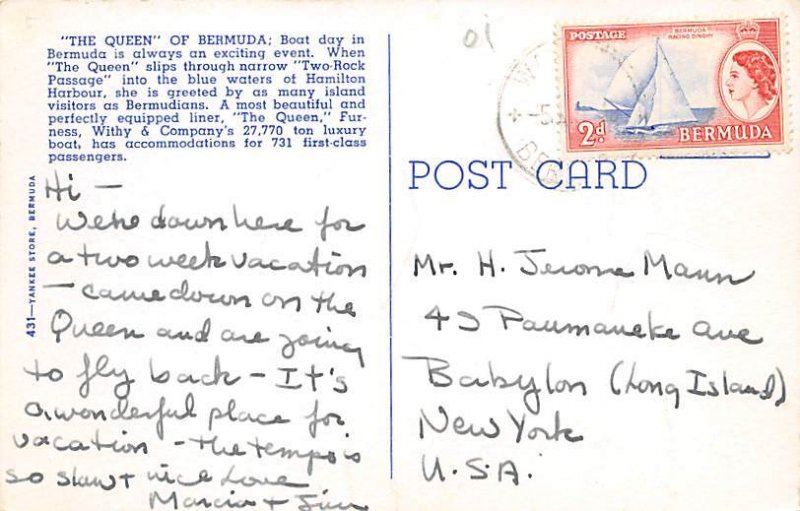 "THE QUEEN" OF BERMUDA; Boat day in
Bermuda is always an exciting event. When
"The Queen" slips through narrow "Two-Rock
Passage" into the blue waters of Hamilton
Harbour, she is greeted by as many island
visitors as Bermudians. A most beautiful and
perfectly equipped liner, "The Queen," Fur-
ness, Withy & Company's 27,770 ton luxury
boat, has accommodations for 731 first-class
passengers.
431—YANKEE STORE, BERMUDA
Hi —
We're down here for
a two week vacation
— came down on the
Queen and are going
to fly back — It's
a wonderful place for
vacation — the tempo is
so slow + nice Love
Marcia + Jim
01
POSTAGE
BERMUDA
RACING DINGHY
2d
BERMUDA
POST CARD
Mr. H. Jerome Mann
45 Paumaneke Ave
Babylon (Long Island)
New York
U.S.A.